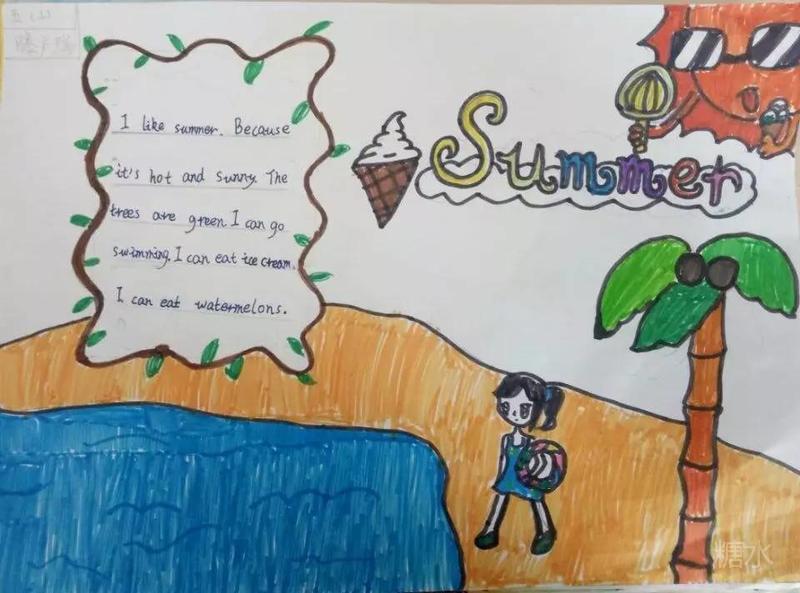 I like summer. Because
it's hot and sunny. The
trees are green. I can go
swimming. I can eat ice cream.
I can eat watermelons.
Summer
糖水